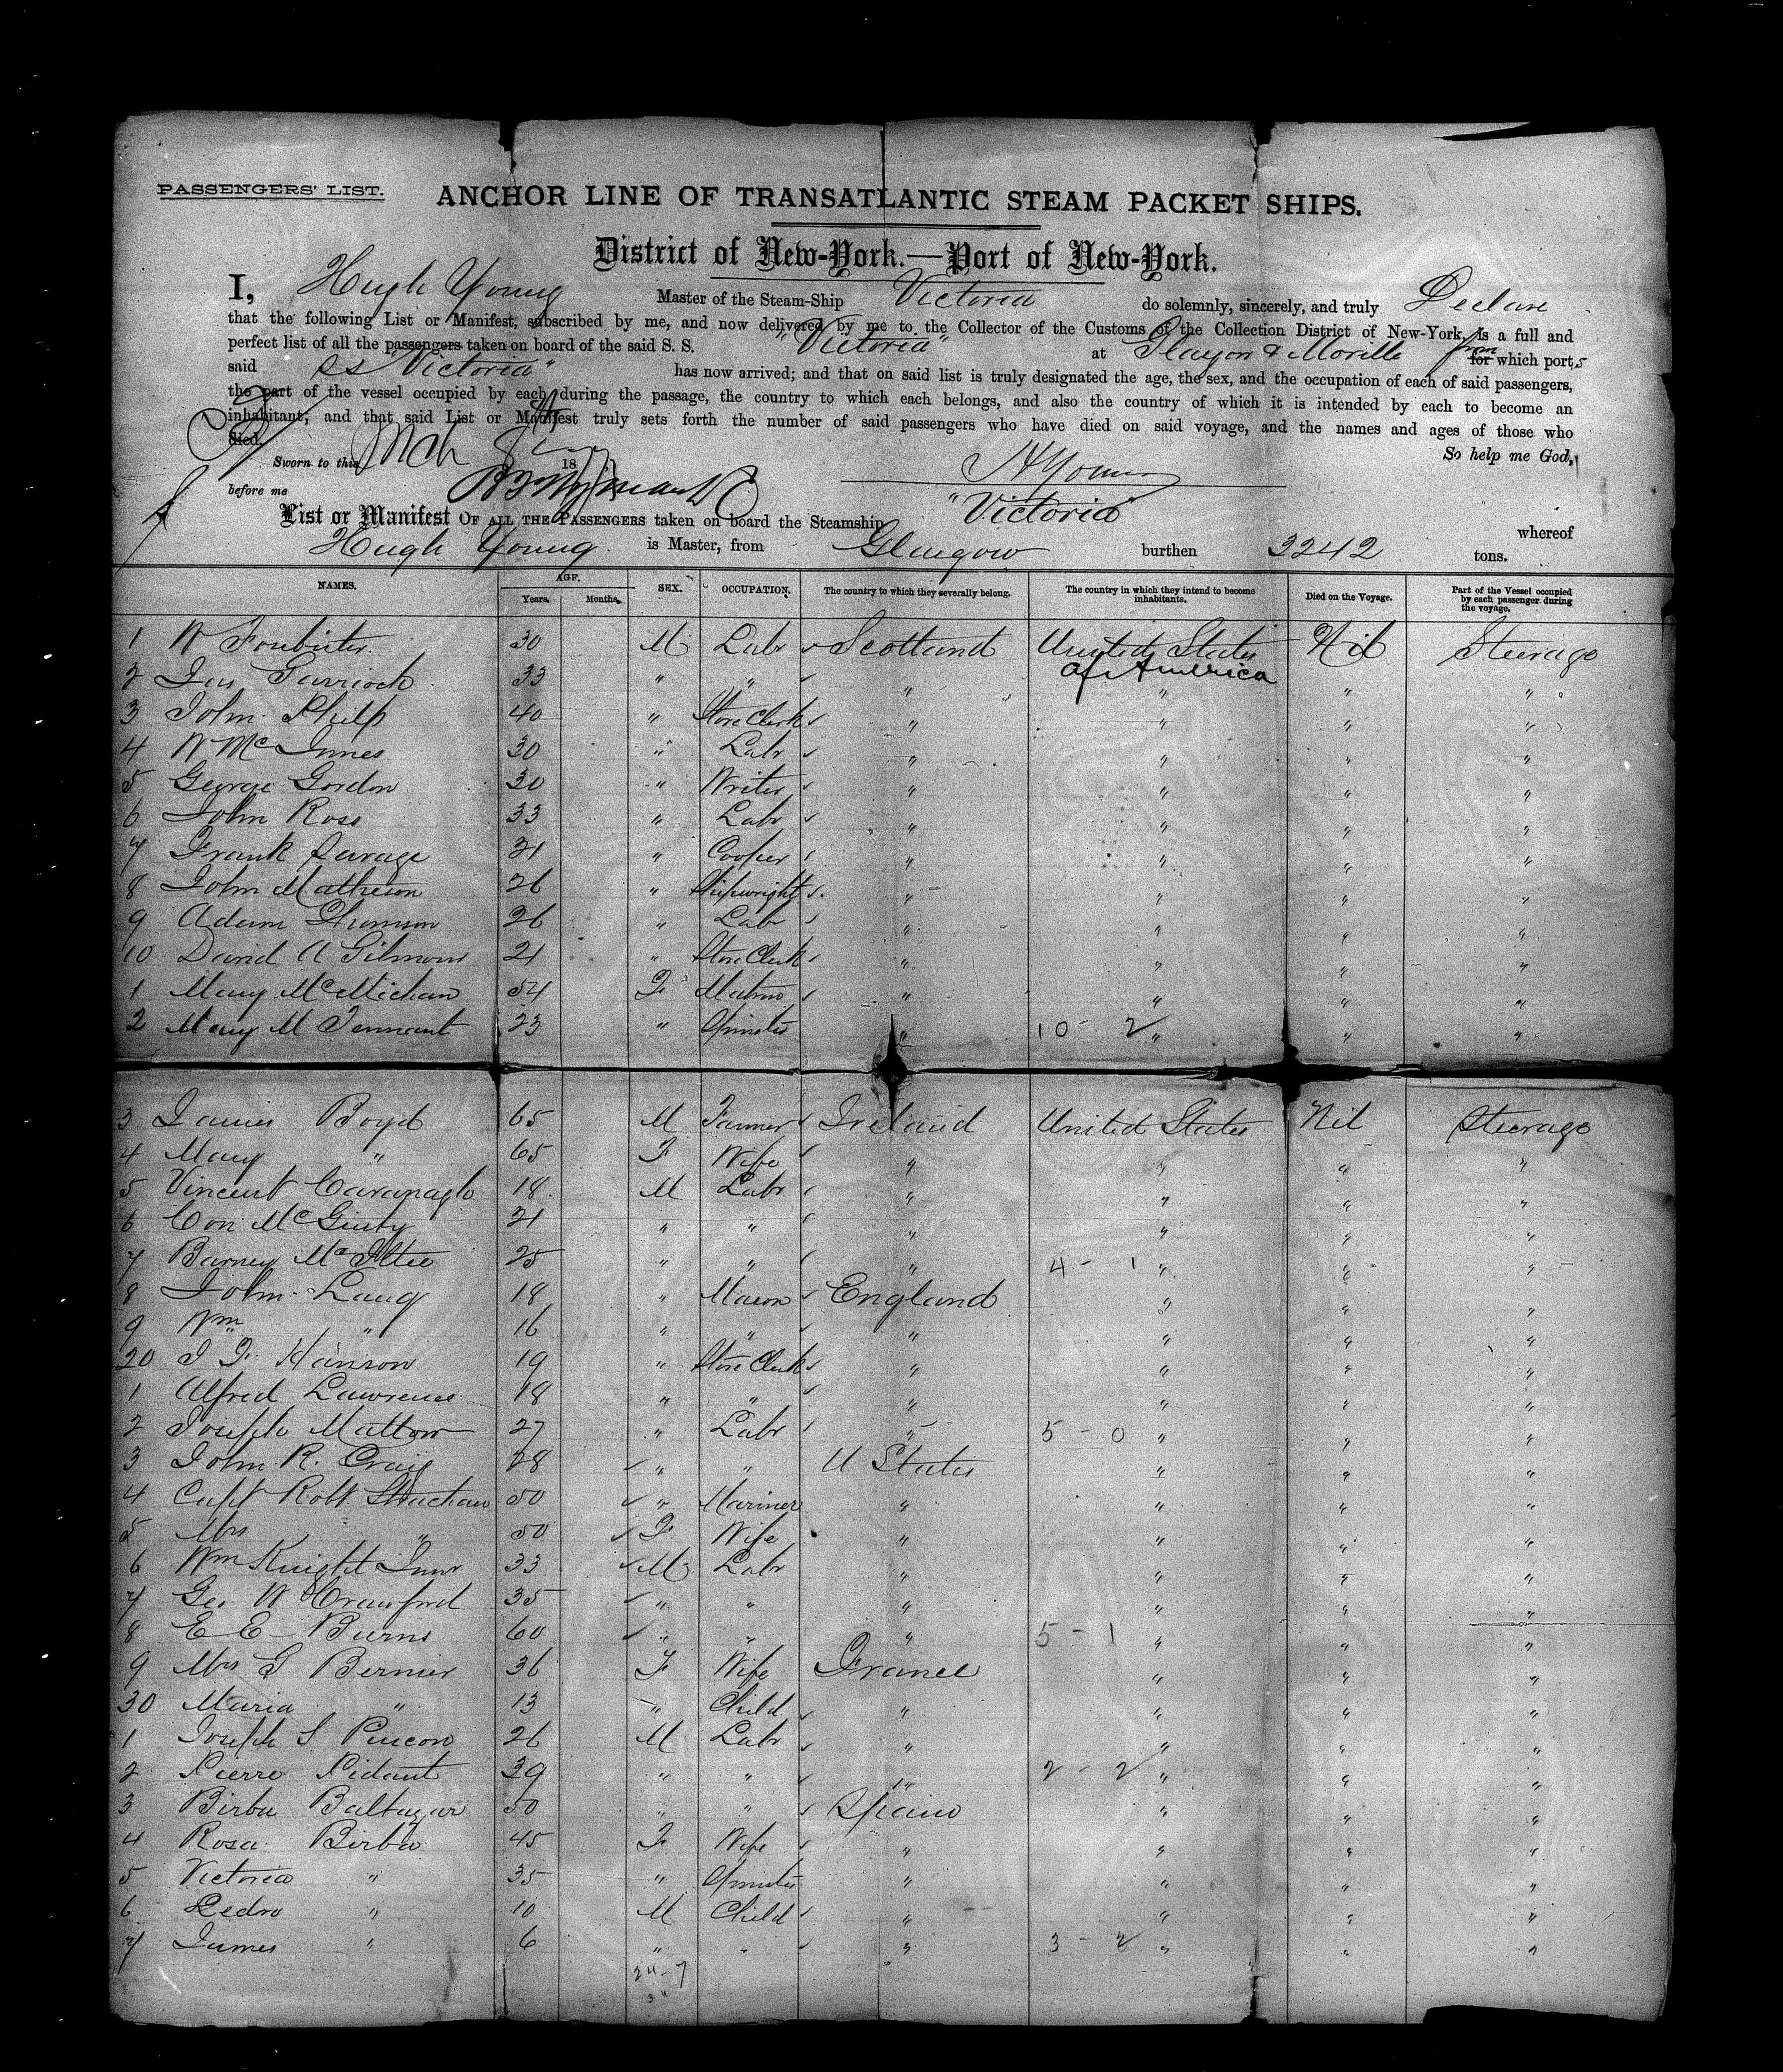 PASSENGERS' LIST.
ANCHOR LINE OF TRANSATLANTIC STEAM PACKET SHIPS.
District of New-York.—Port of New-York.
I, Hugh Young Master of the Steam-Ship Victoria do solemnly, sincerely, and truly Declare
that the following List or Manifest, subscribed by me, and now delivered by me to the Collector of the Customs of the Collection District of New-York, is a full and
perfect list of all the passengers taken on board of the said S. S. "Victoria" at Glasgow & Moville from for which ports
said SS "Victoria" has now arrived; and that on said list is truly designated the age, the sex, and the occupation of each of said passengers,
the part of the vessel occupied by each during the passage, the country to which each belongs, and also the country of which it is intended by each to become an
inhabitant; and that said List or Manifest truly sets forth the number of said passengers who have died on said voyage, and the names and ages of those who
died.
So help me God,
Sworn to this Mch 8th 18 HYoung
before me
List or Manifest OF ALL THE PASSENGERS taken on board the Steamship "Victoria" whereof
Hugh Young is Master, from Glasgow burthen 3242 tons.
NAMES. AGE. Years. Months. SEX. OCCUPATION. The country to which they severally belong. The country in which they intend to become inhabitants. Died on the Voyage. Part of the Vessel occupied by each passenger during the voyage.
1 W Foubister 30 M Labr Scotland United States of America Nil Steerage
2 Jas Garrioch 33 " " " " " "
3 John Philp 40 " Store Clerk " " " "
4 W McInnes 30 " Labr " " " "
5 George Gordon 30 " Writer " " " "
6 John Ross 33 " Labr " " " "
7 Frank Savage 21 " Cooper " " " "
8 John Matheson 26 " Shipwright " " " "
9 Adam Thomson 26 " Labr " " " "
10 David A Gilmour 21 " Store Clerk " " " "
1 Mary McMichan 54 F Matron " " " "
2 Mary M Tennant 23 " Spinster " 10 - 2 " " "
3 James Boyd 65 M Farmer Ireland United States Nil Steerage
4 Mary " 65 F Wife " " " "
5 Vincent Cavanagh 18 M Labr " " " "
6 Con McGinty 21 " " " " " "
7 Barney 25 " " " 4 - 1 " " "
8 John Lang 18 " Mason England " " "
9 Wm " 16 " " " " " "
20 J F Hanson 19 " Store Clerk " " " "
1 Alfred Lawrence 18 " " " " " "
2 Joseph Mattow 27 " Labr " 5 - 0 " " "
3 John R. Craig 28 " " U States " " "
4 Capt Robt Strachan 50 " Mariner " " " "
5 Mrs " 50 F Wife " " " "
6 Wm Knight Junr 33 M Labr " " " "
7 Geo W Crawford 35 " " " " " "
8 E E Burns 60 " " " 5 - 1 " " "
9 Mrs G Bernier 36 F Wife France " " "
30 Maria " 13 " Child " " " "
1 Joseph S Pincon 26 M Labr " " " "
2 Pierre Pidant 39 " " " 2 - 2 " " "
3 Birba Baltazar 50 " " Spain " " "
4 Rosa Birba 45 F Wife " " " "
5 Victoria " 35 " Spinster " " " "
6 Pedro " 10 M Child " " " "
7 James " 6 " " " 3 - 2 " " "